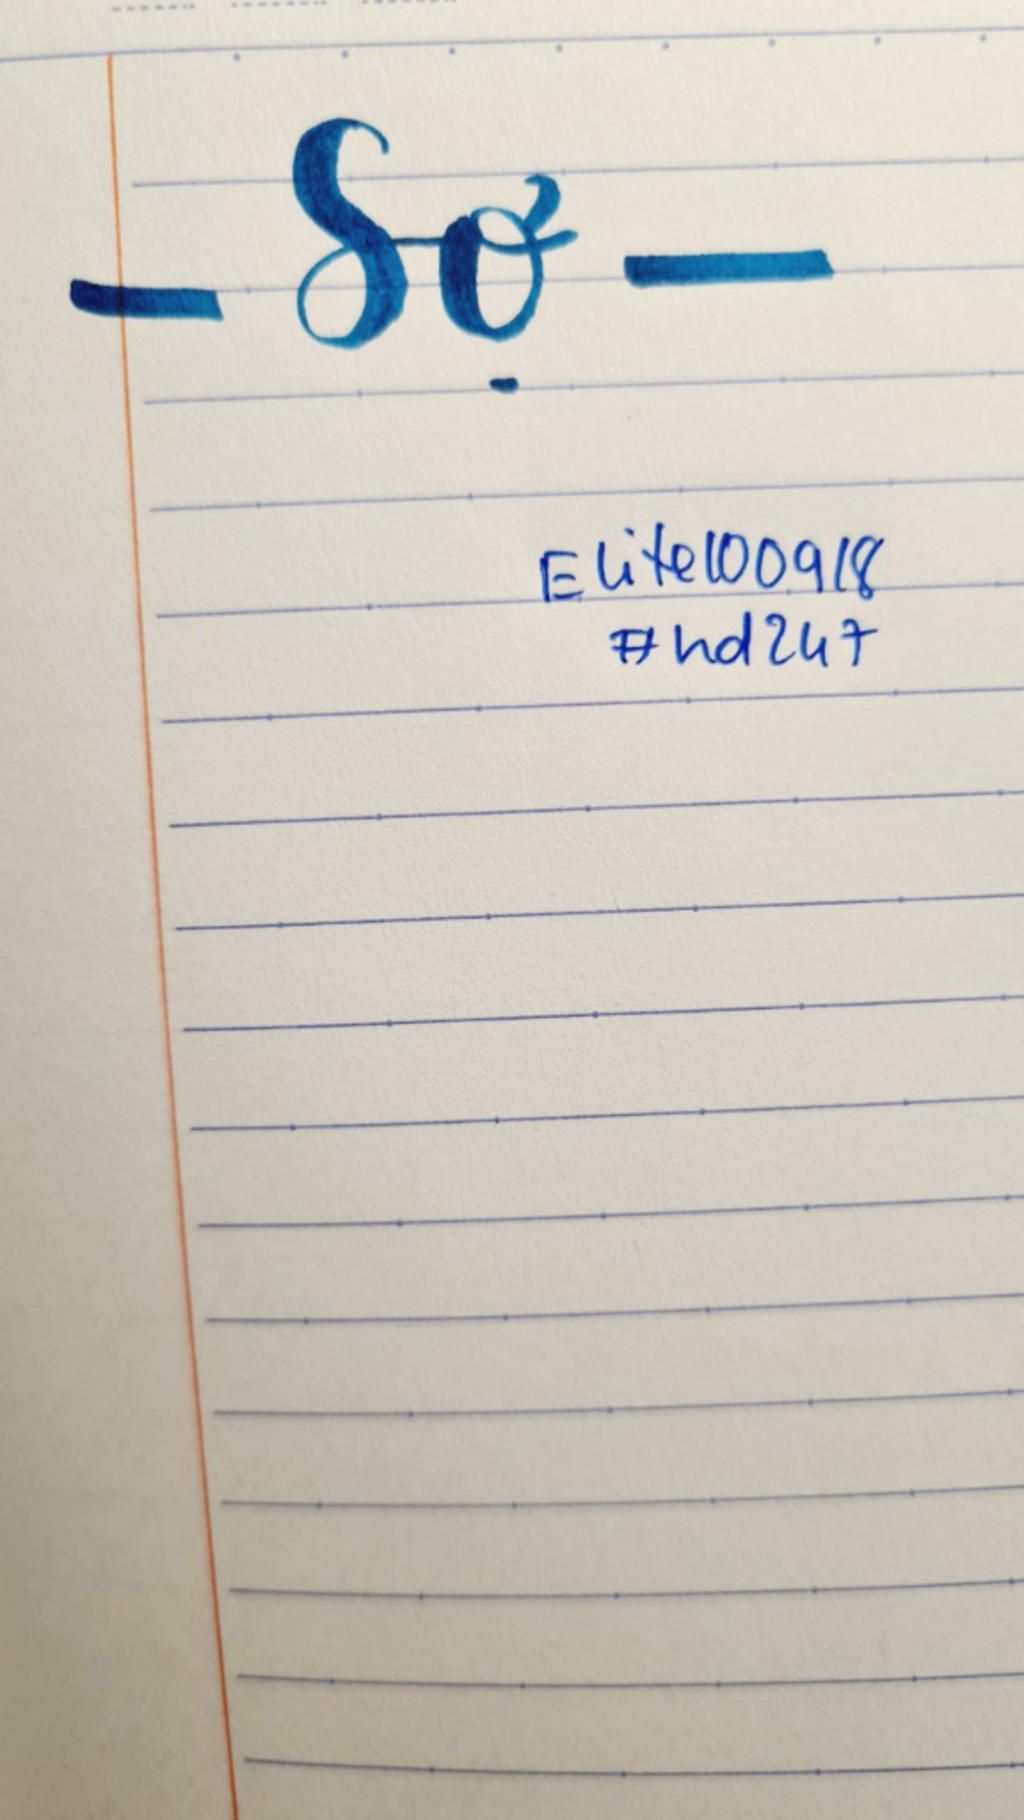 - Sợ -
Elite100918
#hd247